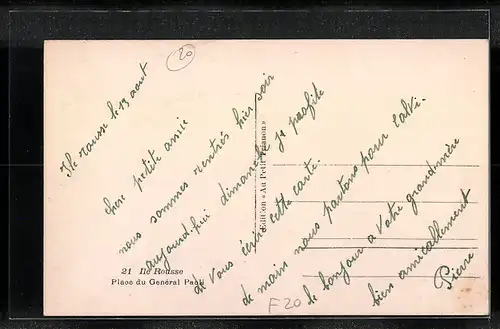 20
Ile rousse le 13 aout
chere petite amie
nous sommes rentrés hier soir
aujourd'hui dimanche je profite
de Vous écrire cette carte.
de main nous partons pour Calvi.
le bonjour a Votre grandmère
bien amicallement
Pierre
Edition «Au Petit Trianon»
21 Ile Rousse
Place du Général Paoli
F20